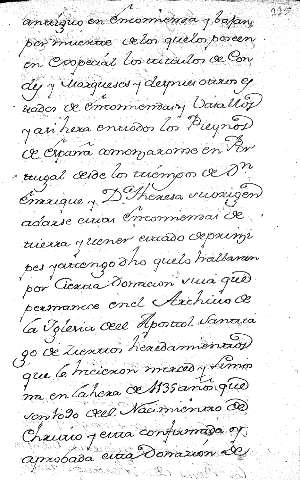 225
antiguo en Encomienda y bajan
por muerte de los que los poseen
en especial los titulos de Con
des y Marqueses y despues otros es
tados de Encomiendas y Vasallos
y asi hera en todos los Reynos
de españa comenzaron en Por
tugal desde los tiempos de Dn
Enrrique y Dª Theresa su origen
a darse estas Encomiendas de
tierra y tener estado de princi
pes y asi tengo dho que lo hallaran
por cierta Donacion suia que
permanece en el Archivo de
la Yglesia del Apostol Santia
go de ciertos heredamientos
que la hicieron merced y limos
na en la hera de 1135 años que
son del Nacimiento de
Christo y esta confirmada y
aprobada esta Donazion de